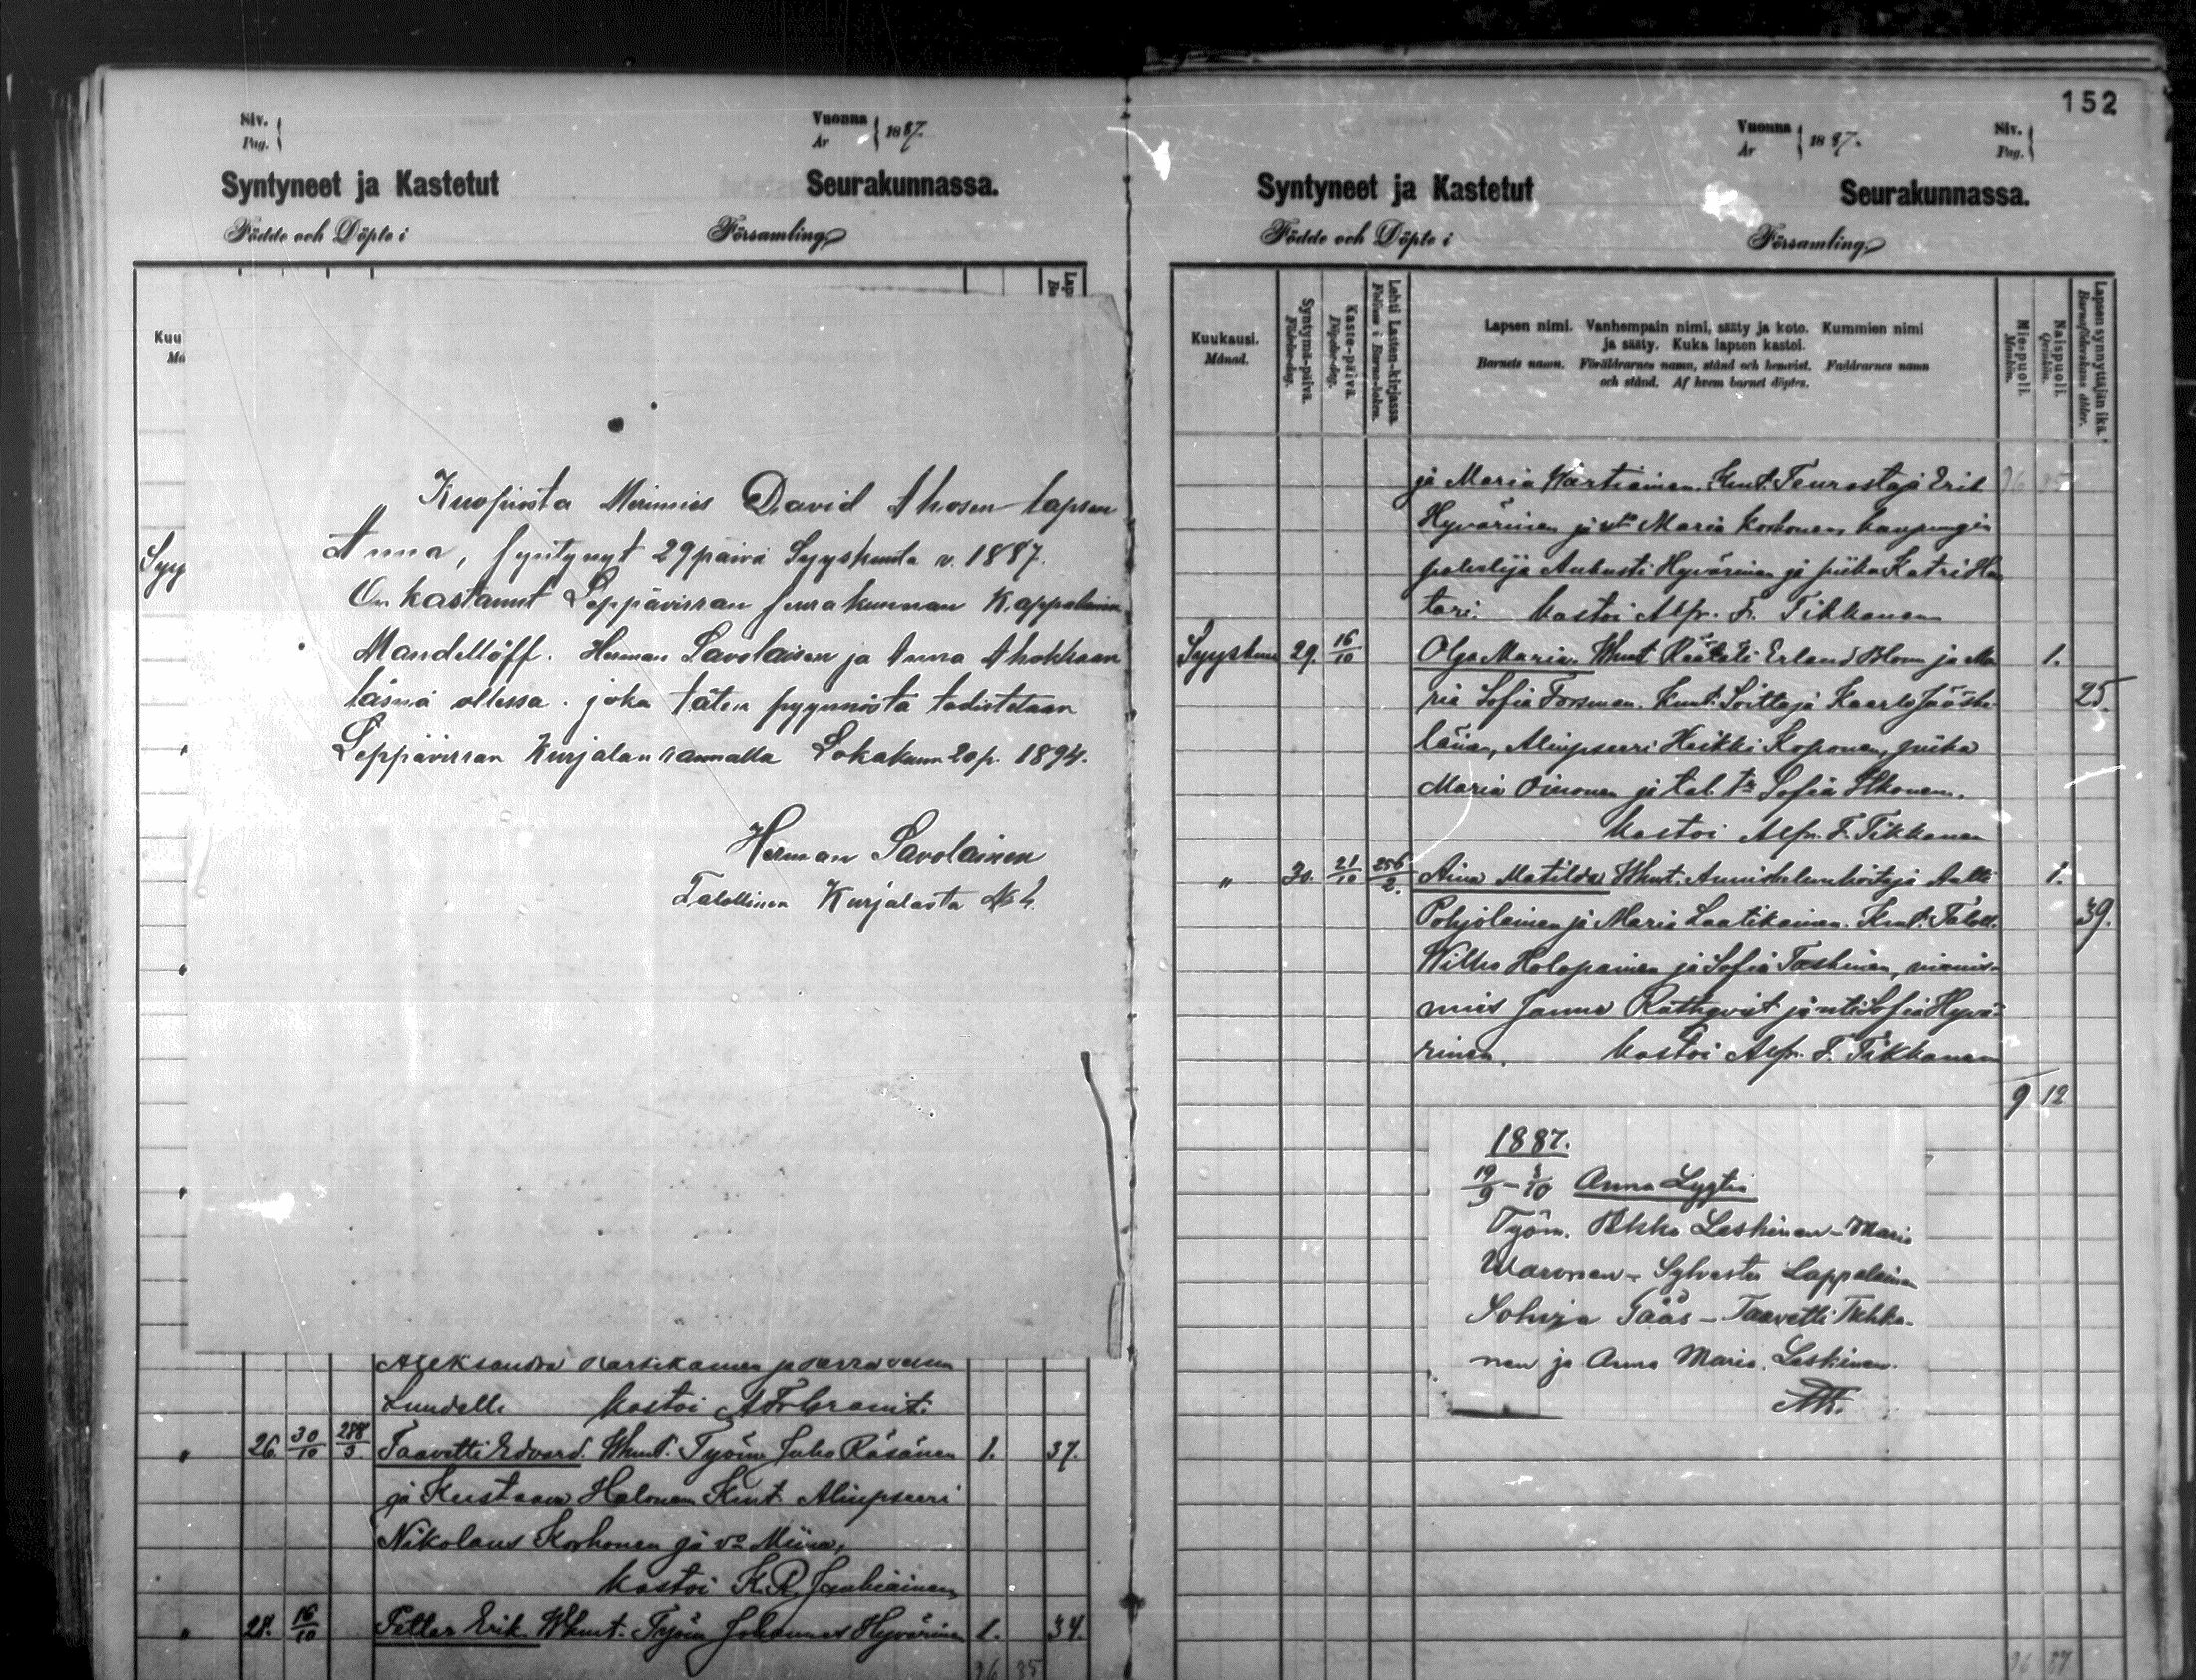 Siv.
Pag.
Vuonna
År
1887.
Syntyneet ja Kastetut Seurakunnassa.
Födde och Döpte i Församling
Kuu
Syy
Kuopiosta Merimies David Ahosen lapsen
Anna, syntynyt 29 päivä Syyskuuta v. 1887.
On kastanut Leppävirran seurakunnan Kappalainen
Mandellöff. Herman Savolaisen ja Anna Ahokkaan
läsnä ollessa. joka täten pyynnöstä todistetaan
Leppävirran Kurjalan rannalla Lokakuun 20 p. 1894.
Herman Savolainen
Talollinen Kurjalasta
Lundell. kastoi
" 26. 30/10 288/3. Taavetti Edvard. Whmt. Työm. Juho Räsänen 1. 37.
ja Kustaava Halonen Kmt. Aliupseeri
Nikolaus Korhonen ja vo Miina,
kastoi K.R. Jauhiainen
" 28. 16/10 Petter Erik. Whmt. Työm Johannes Hyvärinen 1. 34.
152
Vuonna
År
1887.
Siv.
Pag.
Syntyneet ja Kastetut Seurakunnassa.
Födde och Döpte i Församling.
Kuukausi.
Månad.
Syntymä-päivä.
Födelse-dag.
Kaste-päivä.
Döpelse-dag.
Lehti Lasten-kirjassa.
Folium i Barna-boken.
Lapsen nimi. Vanhempain nimi, sääty ja koto. Kummien nimi
ja sääty. Kuka lapsen kastoi.
Barnets namn. Föräldrarnes namn, stånd och hemvist. Faddrarnes namn
och stånd. Af hvem barnet döptes.
Mies-puoli.
Mankön.
Naispuoli.
Qvinkön.
Lapsen synnyttäjän ikä.
Barnaföderskans ålder.
ja Maria Kartiainen. Kmt. Teurastaja Erik
Hyvärinen ja vo Maria Korhonen, kaupungin
palvelija Aukusti Hyvärinen ja piika Katri Ha
tari. kastoi Alfr. F. Tikkanen
Syyskuu 29. 16/10 Olga Maria. Whmt Räätäli Erland Blom ja Ma 1.
ria Sofia Forsman. Kmt. Soittaja Kaarlo Jääske 25.
läinen, Aliupseeri Heikki Koponen, piika
Maria Oinonen ja tal. tr Sofia
kastoi Alfr. F. Tikkanen
" 30. 21/10 256/2. Aina Matilda Whmt. Antti 1.
Pohjolainen ja Maria Laatikainen. Kmt. Taloll. 39.
Wilho Holopainen ja Sofia Taskinen, nimis-
mies Janne Rathqvist ja Sofia Hyvä-
rinen. kastoi Alfr. F. Tikkanen
9 12
1887.
19/9 - 3/10 Anna Lyytia
Työm. Pekka Leskinen - Maria
Waronen - Sylvester Lappalainen
Sohvja Jääs - Taavetti Tikka-
nen ja Anna Maria Leskinen.